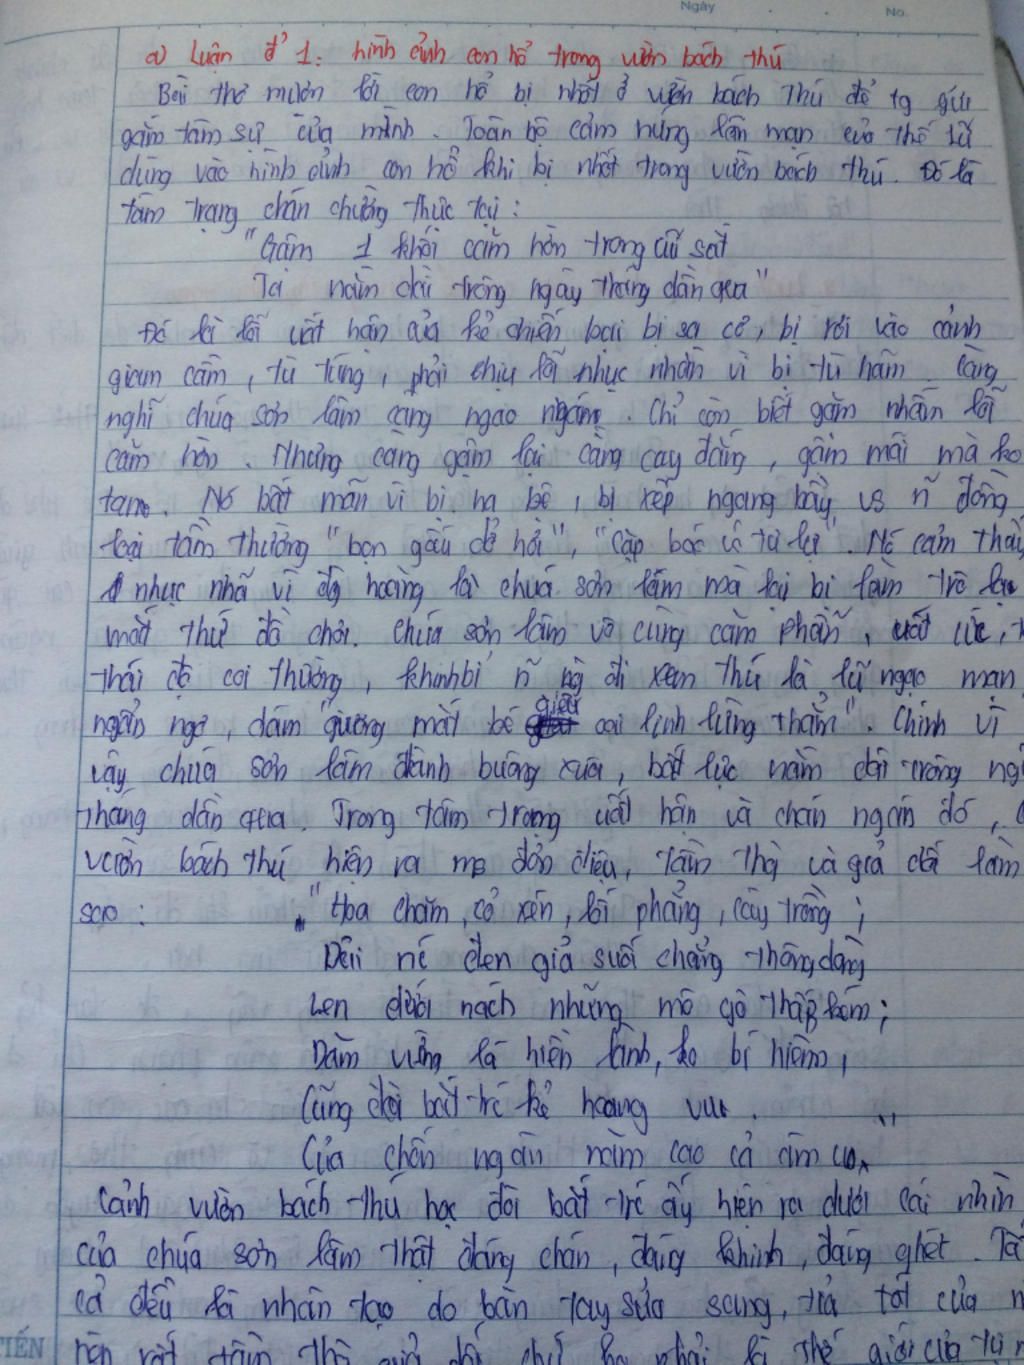 Ngày
No.
a) Luận đ' 1: hình ảnh con hổ trong vườn bách thú
Bài thơ mượn lời con hổ bị nhốt ở vườn bách thú để tg gửi
gắm tâm sự của mình. Toàn bộ cảm hứng lãn mạn của thế lữ
dùng vào hình ảnh con hổ khi bị nhốt trong vườn bách thú. Đó là
tâm trạng chán chường thực tại:
"Gậm 1 khối căm hờn trong cũi sắt
Ta nằm dài trông ngày tháng dần qua"
Đó là lỗi uất hận của kẻ chiến bại bị sa cơ, bị rơi vào cảnh
giam cầm, tù túng, phải chịu lỗi nhục nhằn vì bị tù hãm càng
nghĩ chúa sơn lâm càng ngao ngán. Chỉ còn biết gặm nhấm lỗi
căm hờn. Nhưng càng gậm lại càng cay đắng, gậm mãi mà ko
tan. Nó bất mãn vì bị hạ bệ, bị xếp ngang bầy vs ~n đồng
loại tầm thường "bọn gấu dở hơi", "cặp báo vô tư lự". Nó cảm thấy
nhục nhã vì đg hoàng là chúa sơn lâm mà lại bị làm trò lạ
một thứ đồ chơi. Chúa sơn lâm vô cùng căm phẫn, uất ức,
thái độ coi thường, khinh bỉ ~n ng đi xem thú là lũ ngạo mạn
ngẩn ngơ, dám "giương mắt bé giễu oai linh rừng thẳm". Chính vì
vậy chúa sơn lâm đành buông xuôi, bất lực nằm dài trông ngày
tháng dần qua. Trong tâm trạng uất hận và chán ngán đó,
vườn bách thú hiện ra mà đơn điệu, tầm thg và giả dối làm
sao: "Hoa chăm, cỏ xén, lối phẳng, cây trồng;
Dải nc đen giả suối chẳng thông dòng
Len dưới nách những mô gò thấp kém;
Dăm vừng lá hiền lành, ko bí hiểm,
Cũng đòi bắt trc kẻ hoang vu.
Của chốn ngàn năm cao cả âm u"
Cảnh vườn bách thú học đòi bắt trc ấy hiện ra dưới cái nhìn
của chúa sơn lâm thật đáng chán, đáng khinh, đáng ghét. Tất
cả đều là nhân tạo do bàn tay sửa sang, tỉa tót của
TIẾN